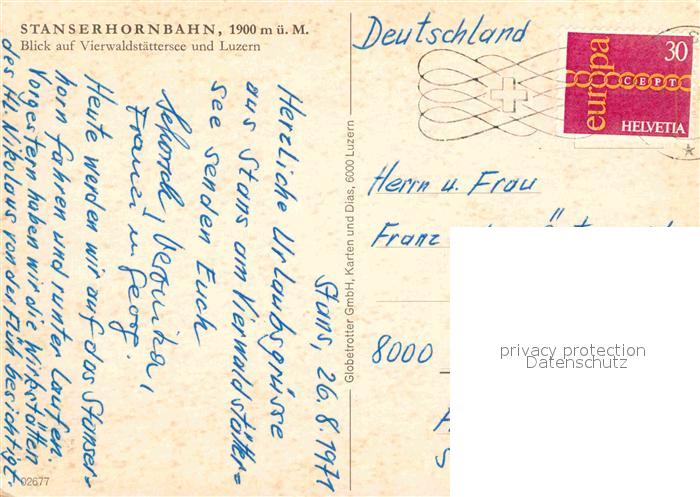 STANSERHORNBAHN, 1900 m ü. M.
Blick auf Vierwaldstättersee und Luzern
Stans, 26.8.1971
Herzliche Urlaubsgrüsse
aus Stans am Vierwaldstätter=
see senden Euch
Schorsch, Veronika,
Franzi u. Georg.
Heute werden wir auf das Stanser-
horn fahren und runter laufen.
Vorgestern haben wir die Wirkstätten
des Hl. Nikolaus von der Flüh besichtigt.
02677
Globetrotter GmbH, Karten und Dias, 6000 Luzern
Deutschland
30
europa
CEPT
HELVETIA
Herrn u. Frau
Franz
8000
privacy protection
Datenschutz